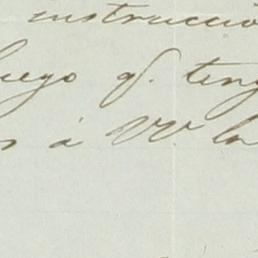 instrucció
luego q. teng
s á VV. la